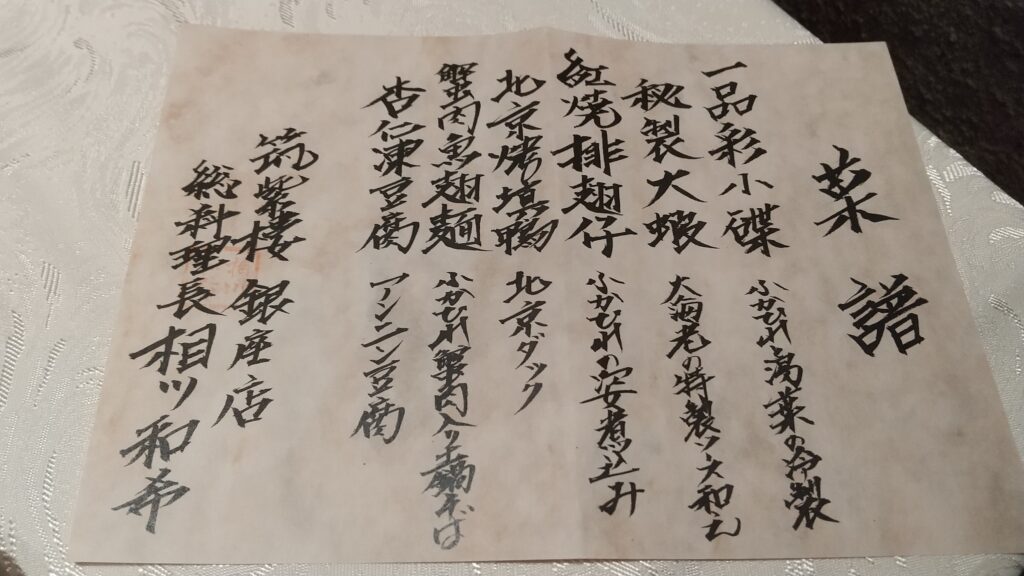 菜譜
一品彩小碟 ふかひれ萵菜の冷製
秘製大蝦 大海老の特製ソース和え
紅焼排翅仔 ふかひれの姿煮込み
北京烤填鴨 北京ダック
蟹肉魚翅麺 ふかひれ蟹肉入り土鍋そば
杏仁凍豆腐 アンニン豆腐
筑紫楼 銀座店
総料理長 相ツ和希